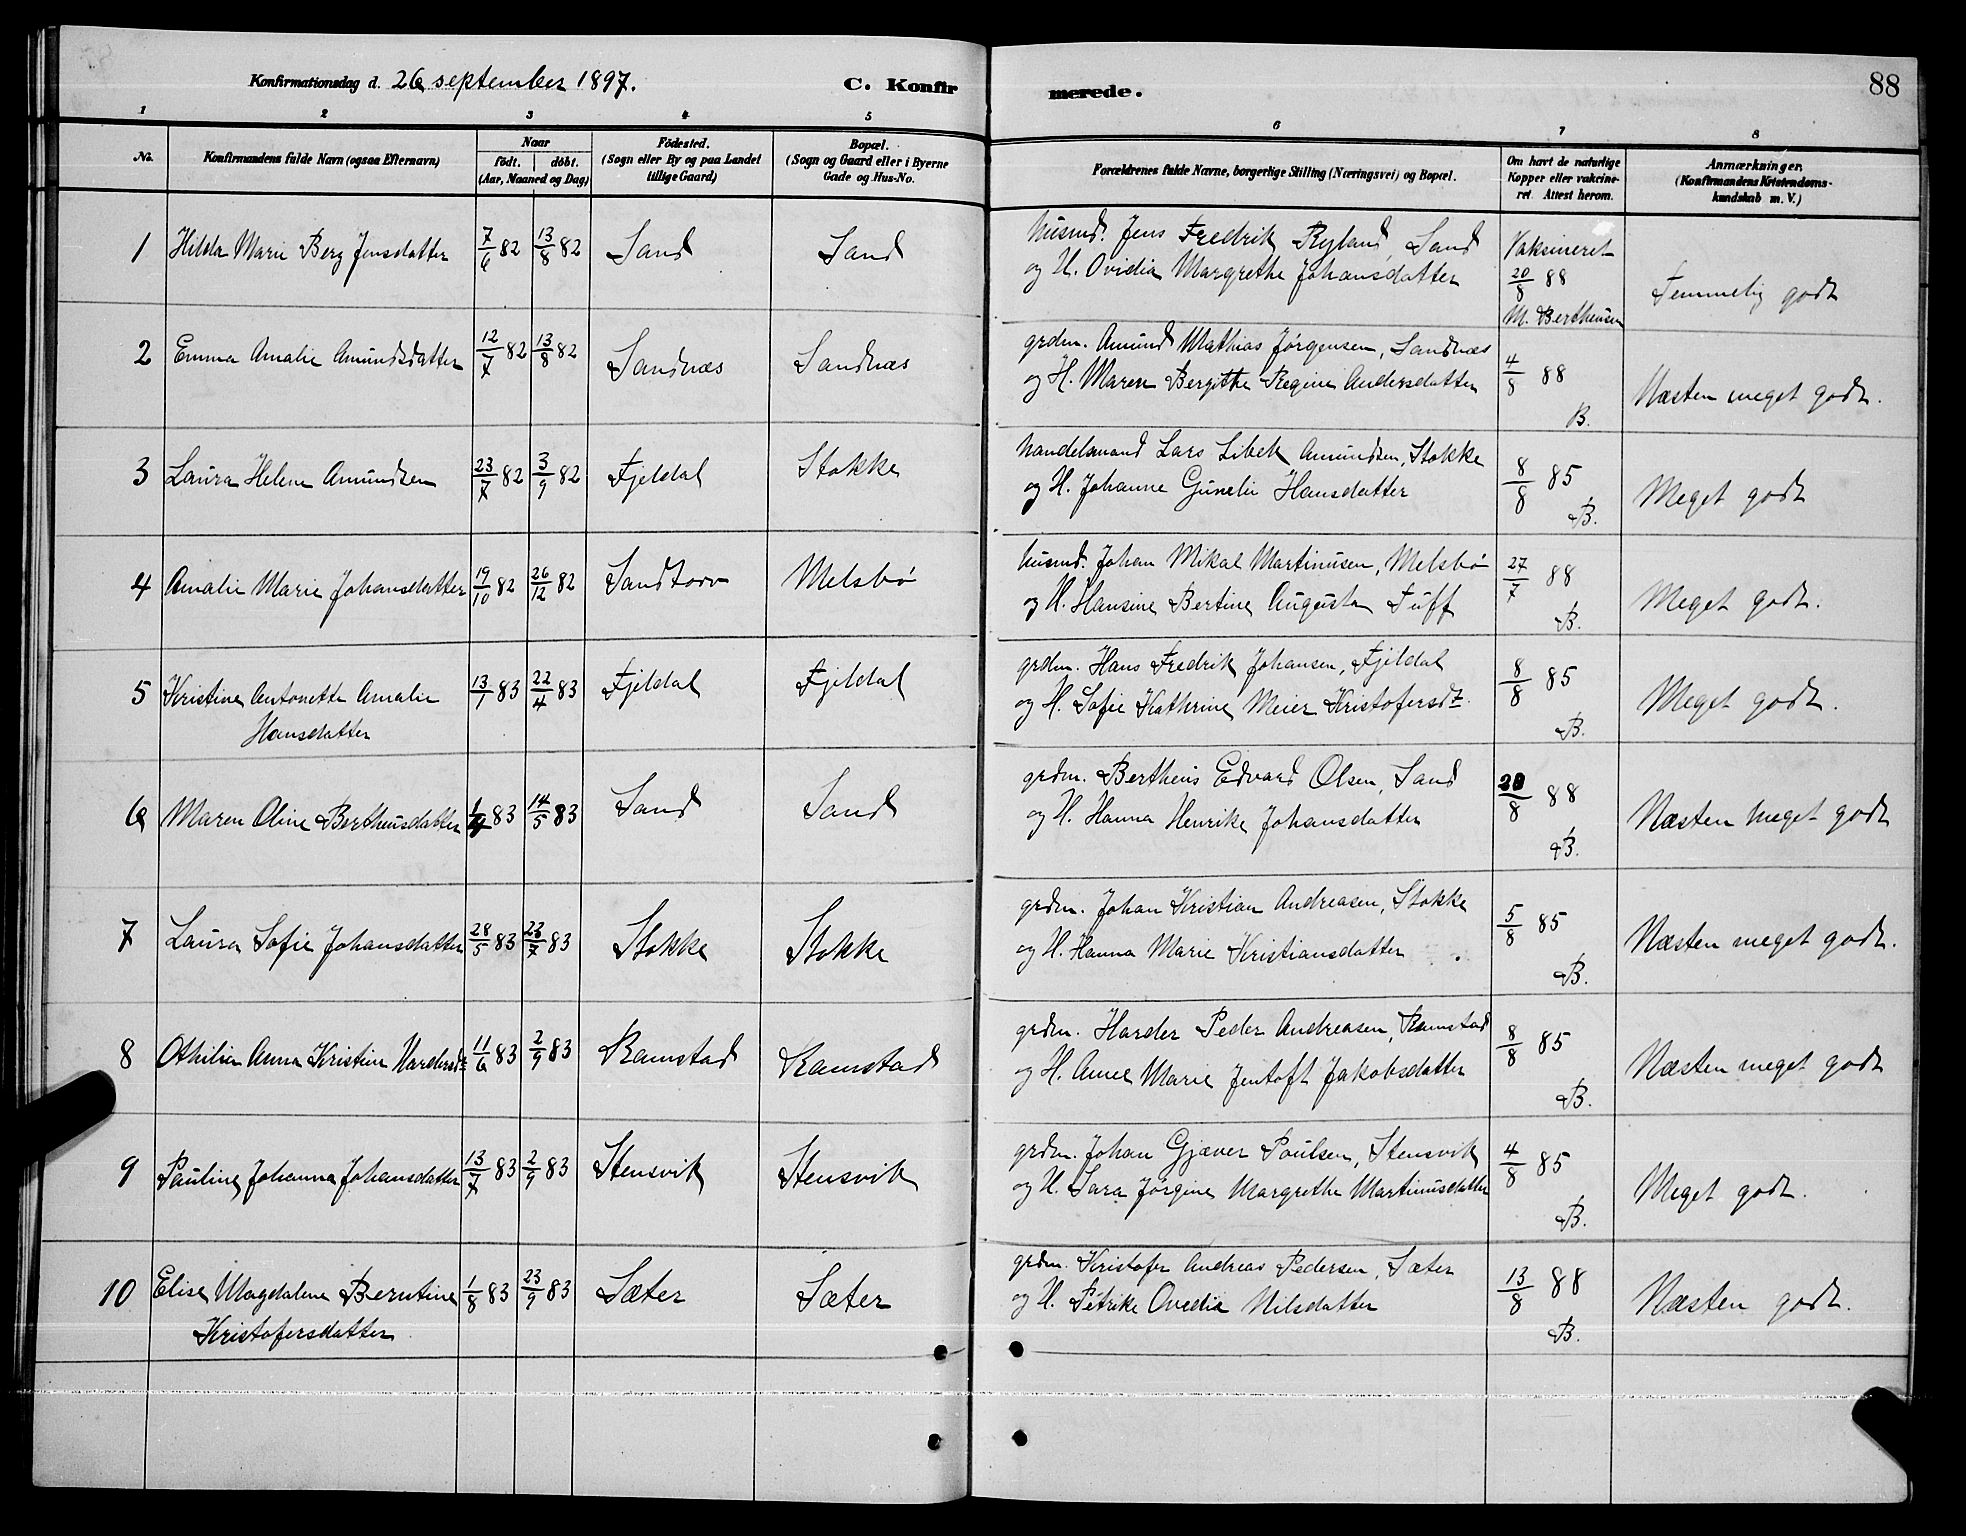 Konfirmationsdag d. 26 september 1897.
C. Konfirmerede.
88
1 2 3 4 5 6 7 8
No.
Konfirmandens fulde Navn (ogsaa Efternavn)
Naar
födt. döbt.
(Aar, Maaned og Dag)
Födested.
(Sogn eller By og paa Landet
tillige Gaard)
Bopæl.
(Sogn og Gaard eller i Byerne
Gade og Hus-No.
Forældrenes fulde Navne, borgerlige Stilling (Næringsvei) og Bopæl.
Om havt de naturlige
Kopper eller vakcine-
ret. Attest herom.
Anmærkninger.
(Konfirmandens Kristendoms-
kundskab m. V.)
1 Hilda Marie Berg Jensdatter 7/6 82 13/8 82 Sand Sand
husmd. Jens Fredrik Ryland, Sand
og H. Ovidia Margrethe Johansdatter
Vaksineret
20/8 88
M. Bertheusen
Temmelig godt
2 Emma Amalie Amundsdatter 12/7 82 13/8 82 Sandnæs Sandnæs
grdm. Amund Mathias Jørgensen, Sandnæs
og H. Maren Bergithe Regine Andersdatter
4/8 88
B.
Næsten meget godt.
3 Laura Helene Amundsen 23/7 82 3/9 82 Fjeldal Stokke
handelsmand Lars Libek Amundsen, Stokke
og H. Johanne Gunelie Hansdatter
8/8 85
B.
Meget godt
4 Amalie Marie Johansdatter 19/10 82 26/12 82 Sandtorv Melsbö
husmd. Johan Mikal Martinusen, Melsbö
og H. Hansine Bertine Augusta Tuff
27/7 88
B.
Meget godt.
5 Kristine Antonette Amalie 13/1 83 22/4 83 Fjeldal Fjeldal
Hansdatter
grdm. Hans Fredrik Johansen, Fjeldal
og H. Sofie Kathrine Meier Kristofersdt.
8/8 85
B.
Meget godt.
6 Maren Oline Bertheusdatter 1/4 83 14/5 83 Sand Sand
grdm. Bertheus Edvard Olsen, Sand
og H. Hanna Henrike Johansdatter
20/8 88
B.
Næsten meget godt
7 Laura Sofie Johansdatter 28/5 83 23/7 83 Stokke Stokke
grdm. Johan Kristian Andreasen, Stokke
og H. Hanna Marie Kristiansdatter
5/8 85
B.
Næsten meget godt.
8 Othilia Anna Kristine Hardersdt. 11/6 83 2/9 83 Ramstad Ramstad
grdm. Harder Peder Andreasen, Ramstad
og H. Anne Marie Jentoft Jakobsdatter
8/8 85
B.
Næsten meget godt
9 Pauline Johanna Johansdatter 13/7 83 2/9 83 Stensvik Stensvik
grdm. Johan Gjæver Poulsen, Stensvik
og H. Sara Jørgine Margrethe Martinusdatter
4/8 85
B.
Meget godt.
10 Elise Magdalene Berntine 1/8 83 23/9 83 Sæter Sæter
Kristofersdatter
grdm. Kristofer Andreas Pedersen, Sæter
og H. Petrike Ovedia Nilsdatter
13/8 88
B.
Næsten godt.